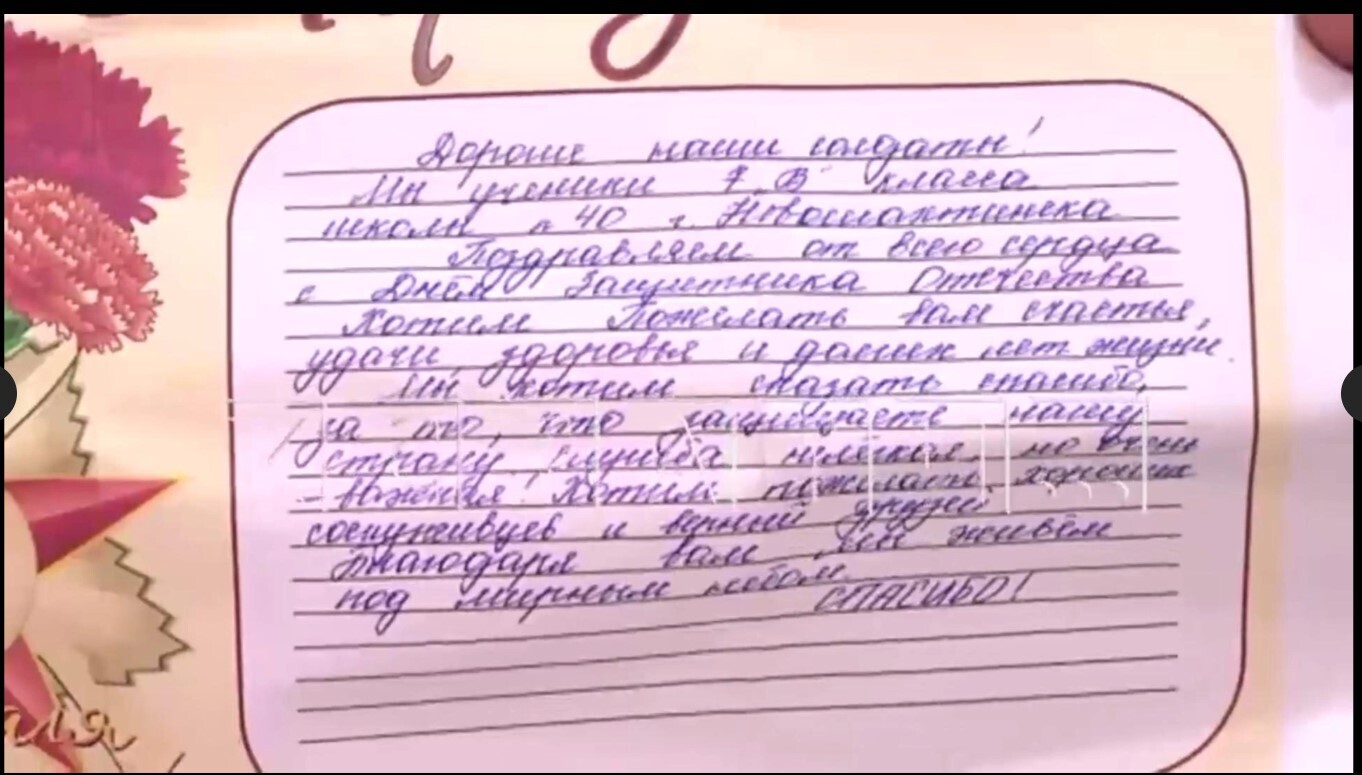 Дорогие наши солдаты!
Мы ученики 7 "В" класса
школы n 40 г. Новошахтинска
Поздравляем от всего сердца
с Днём Защитника Отечества
Хотим Пожелать вам счастья,
удачи здоровья и долгих лет жизни.
Мы хотим сказать спасибо,
за то, что защищаете нашу
страну. Служба нелёгкая, но очень
важная! Хотим пожелать хороших
сослуживцев и верных друзей
Благодаря вам мы живём
под мирным небом.
СПАСИБО!